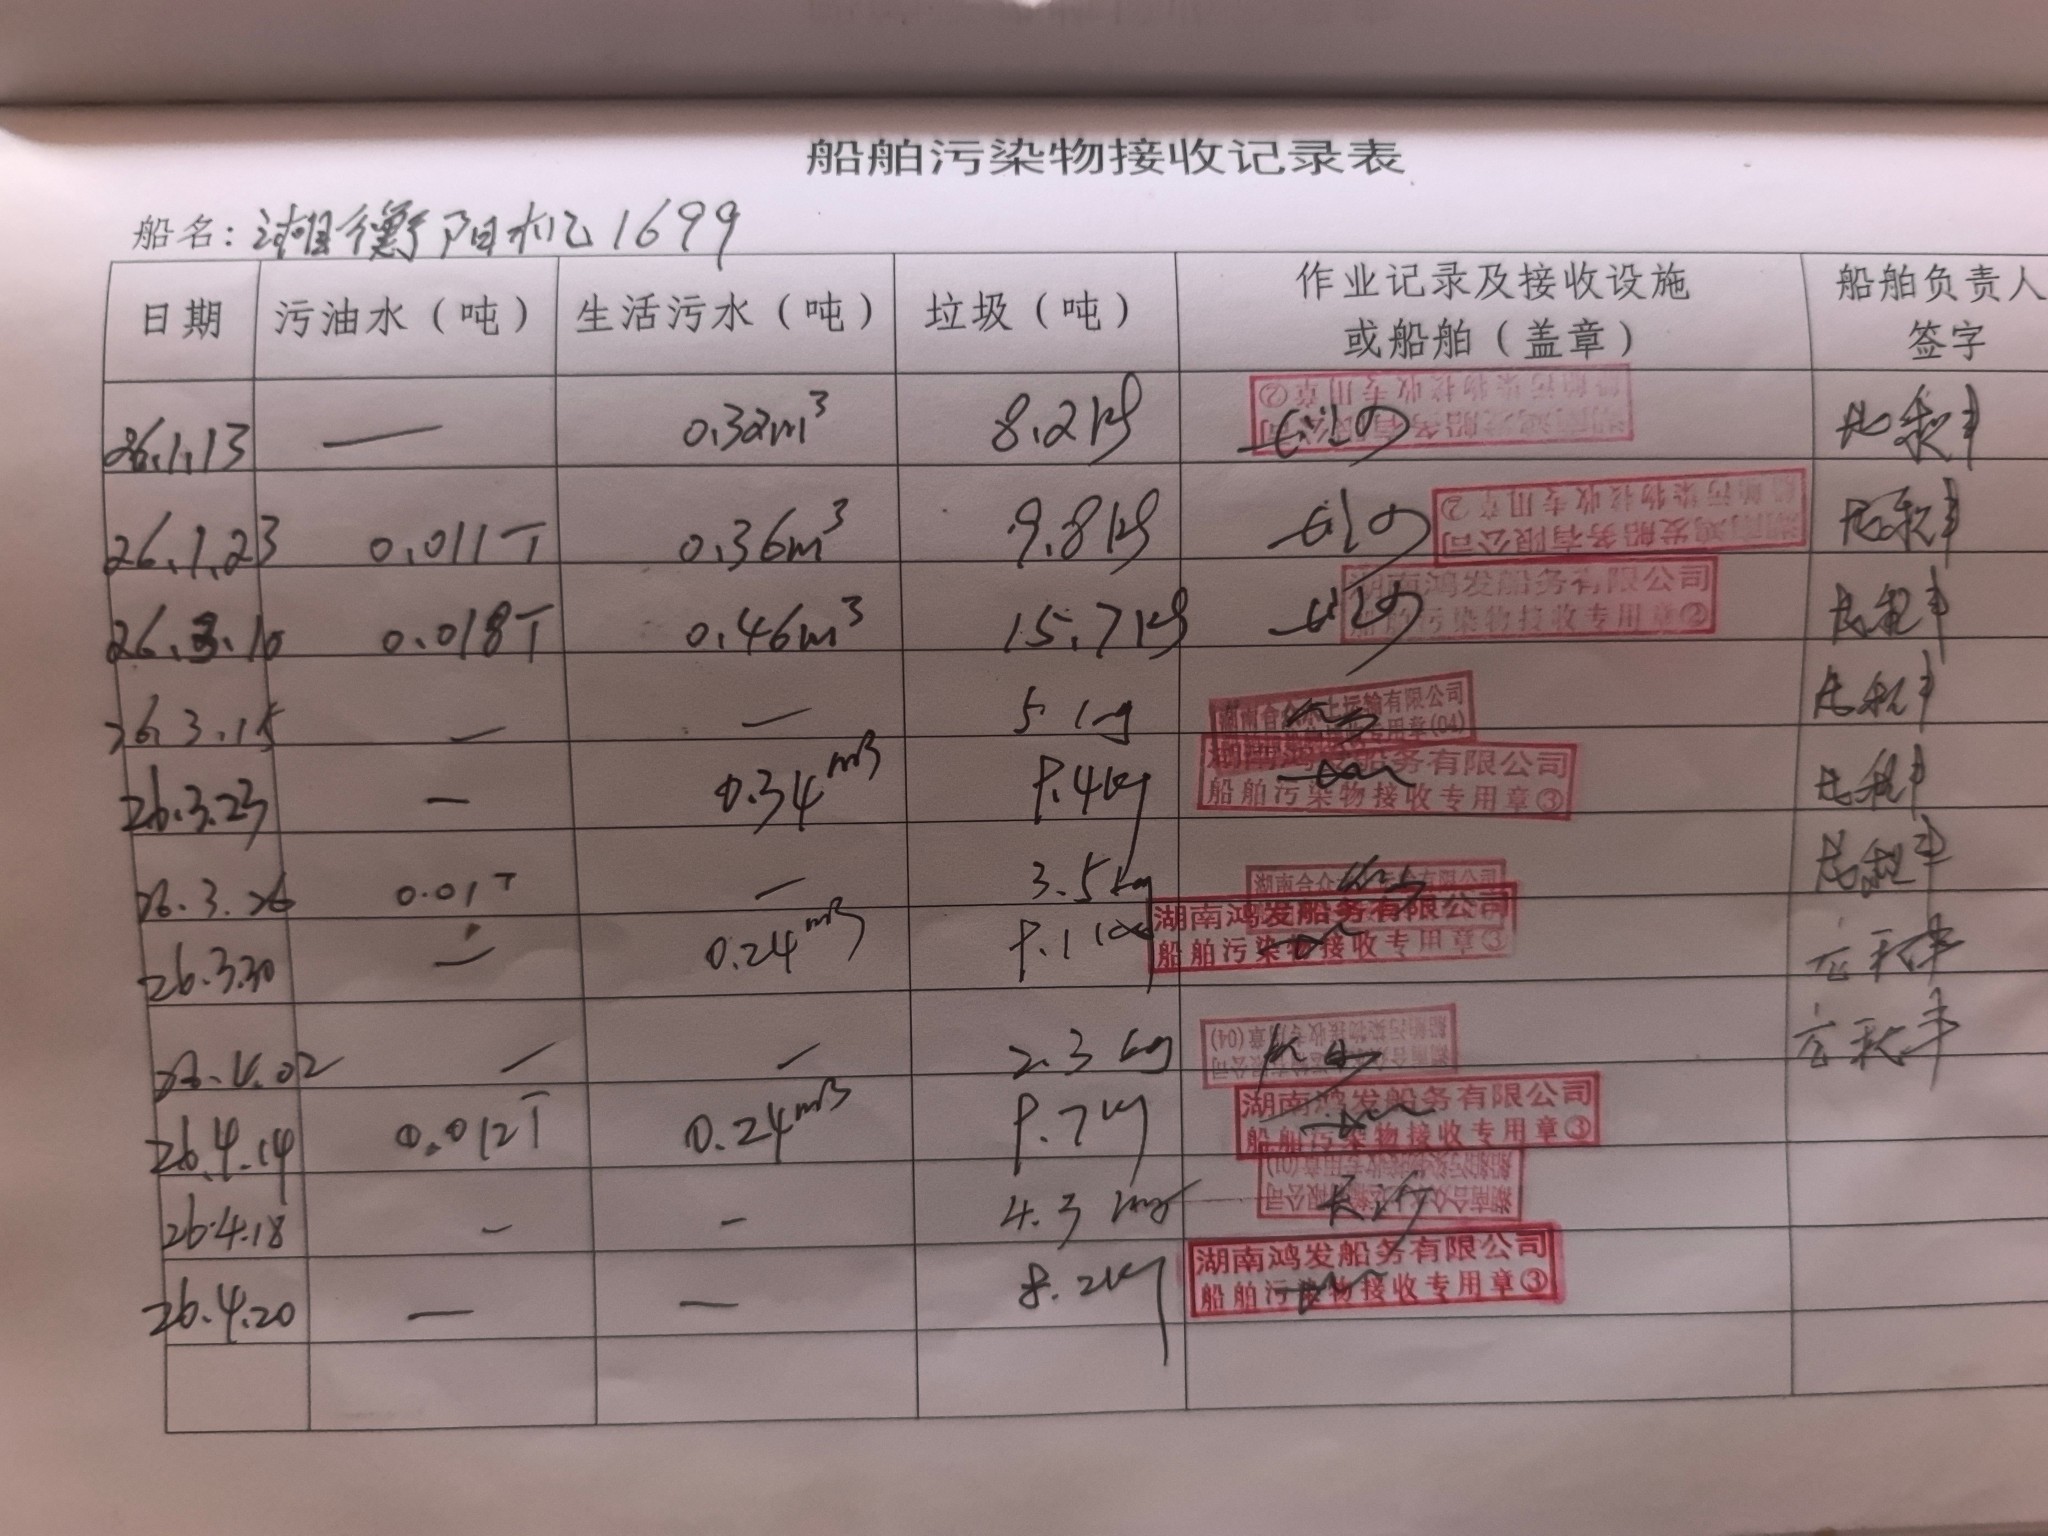 船舶污染物接收记录表
船名：湘衡阳机1699
日期 污油水（吨） 生活污水（吨） 垃圾（吨） 作业记录及接收设施或船舶（盖章） 船舶负责人签字
26.1.13 — 0.32m³ 8.2kg 湖南鸿发船务有限公司 船舶污染物接收专用章②
26.1.23 0.011T 0.36m³ 9.8kg 湖南鸿发船务有限公司 船舶污染物接收专用章②
26.3.10 0.018T 0.46m³ 15.7kg 湖南鸿发船务有限公司 船舶污染物接收专用章②
26.3.15 — — 5.1kg 湖南合众水上运输有限公司 专用章(04)
26.3.23 — 0.34m³ 9.4kg 湖南鸿发船务有限公司 船舶污染物接收专用章③
26.3.26 0.01T — 3.5kg 湖南合众 有限公司
26.3.30 — 0.24m³ 9.1kg 湖南鸿发船务有限公司 船舶污染物接收专用章③
26.4.02 — — 2.3kg 船舶污染物接收专用章(04)
26.4.14 0.012T 0.24m³ 9.7kg 湖南鸿发船务有限公司 船舶污染物接收专用章③
26.4.18 — — 4.3kg 船舶污染物接收专用章(01) 长沙
26.4.20 — — 8.2kg 湖南鸿发船务有限公司 船舶污染物接收专用章③